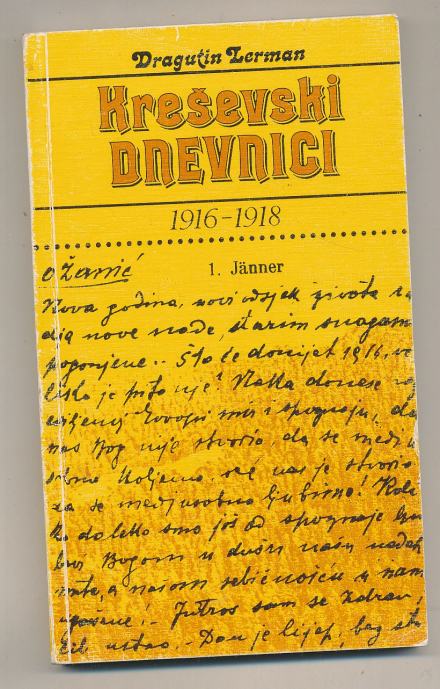 Dragutin Lerman
Kreševski
DNEVNICI
1916-1918
1. Jänner
Nova godina, novi odsjek života
nove nade, starim snagam
Što će donijet 1916, ve
liko je pitanje? Neka donese
Evropi mir i spoznaju, da
nas Bog nije stvorio, da se medju
sobno koljemo, već nas je stvorio
da se medjusobno ljubimo! Koli
ko daleko smo još od spoznaje
Bogom u dušu našu
a našom sebičnošću u nam
Jutros sam se zdrav
ustao. - Dan je lijep, bez